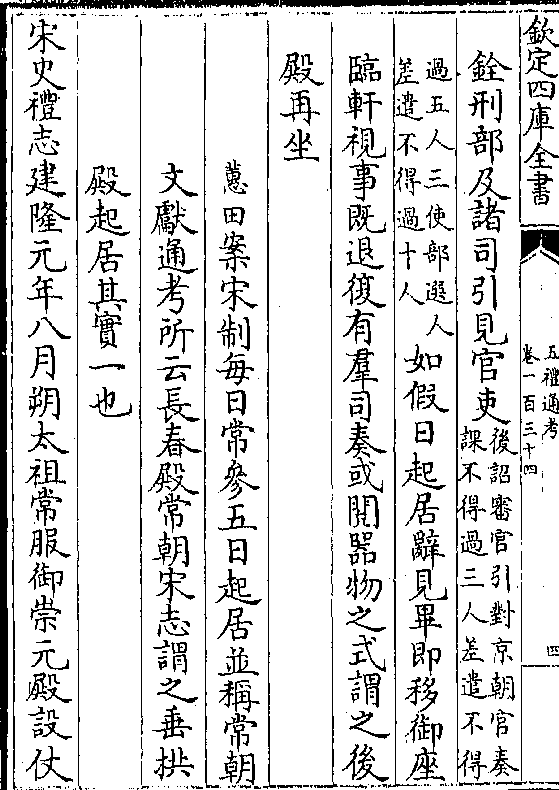 欽定四庫全書
五禮通考
卷一百三十四
四
銓刑部及諸司引見官吏
後詔審官引對京朝官奏
課不得過三人差遣不得
過五人三使部選人
差遣不得過十人
如假日起居辭見畢即移御座
臨軒視事既退復有羣司奏或閱器物之式謂之後
殿再坐
蕙田案宋制每日常參五日起居並稱常朝
文獻通考所云長春殿常朝宋志謂之垂拱
殿起居其實一也
宋史禮志建隆元年八月朔太祖常服御崇元殿設仗